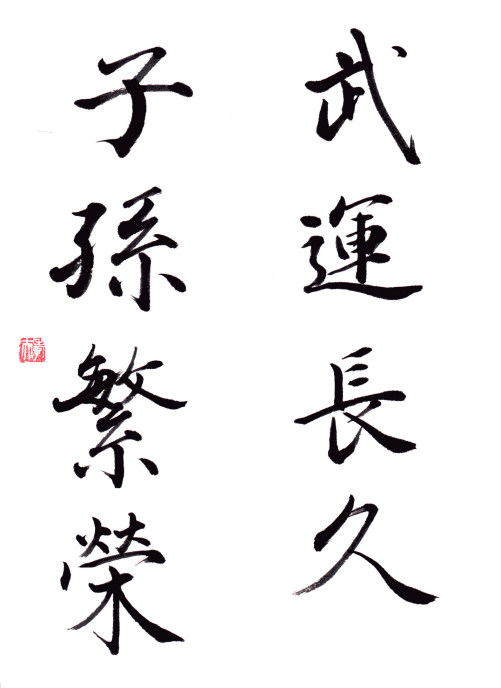 武運長久
子孫繁榮